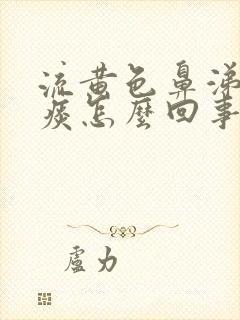 流黄色鼻涕
痰怎麽回事
盧力